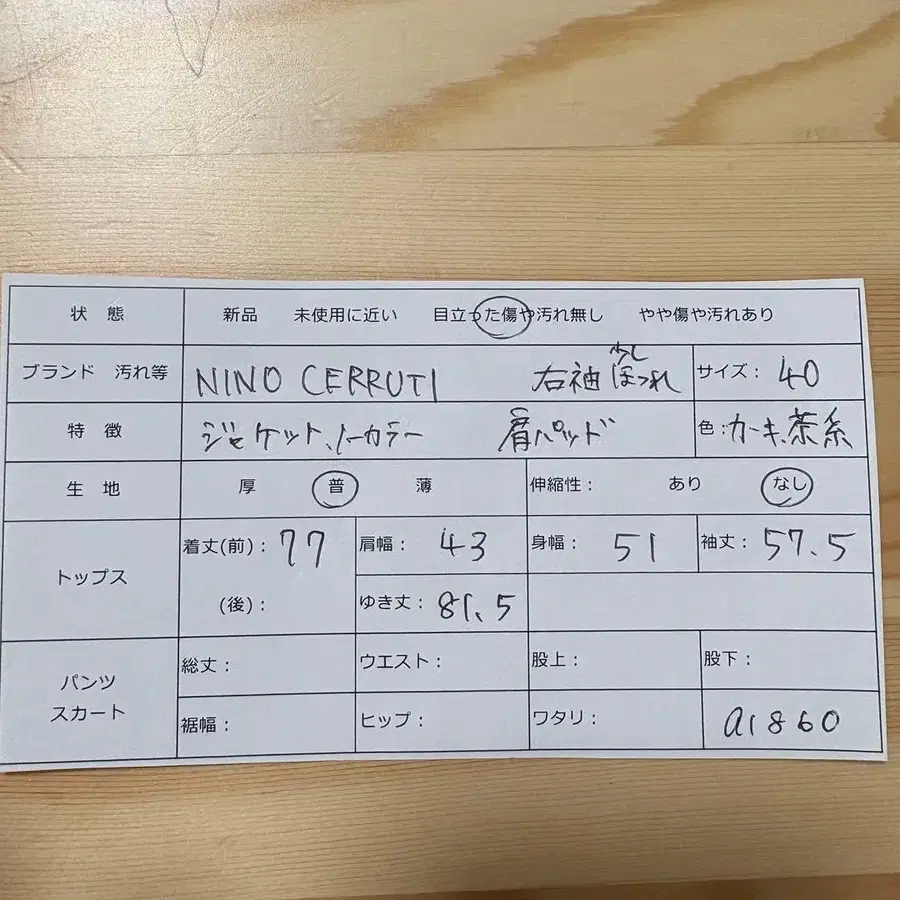 状 態 新品 未使用に近い 目立った傷や汚れ無し やや傷や汚れあり
ブランド 汚れ等 NINO CERRUTI 右袖 少し ほつれ サイズ: 40
特 徴 ジャケット、ノーカラー 肩パッド 色:カーキ、茶系
生 地 厚 普 薄 伸縮性: あり なし
トップス 着丈(前): 77 肩幅: 43 身幅: 51 袖丈: 57.5
(後): ゆき丈: 81.5
パンツ スカート 総丈: ウエスト: 股上: 股下:
裾幅: ヒップ: ワタリ: a1860